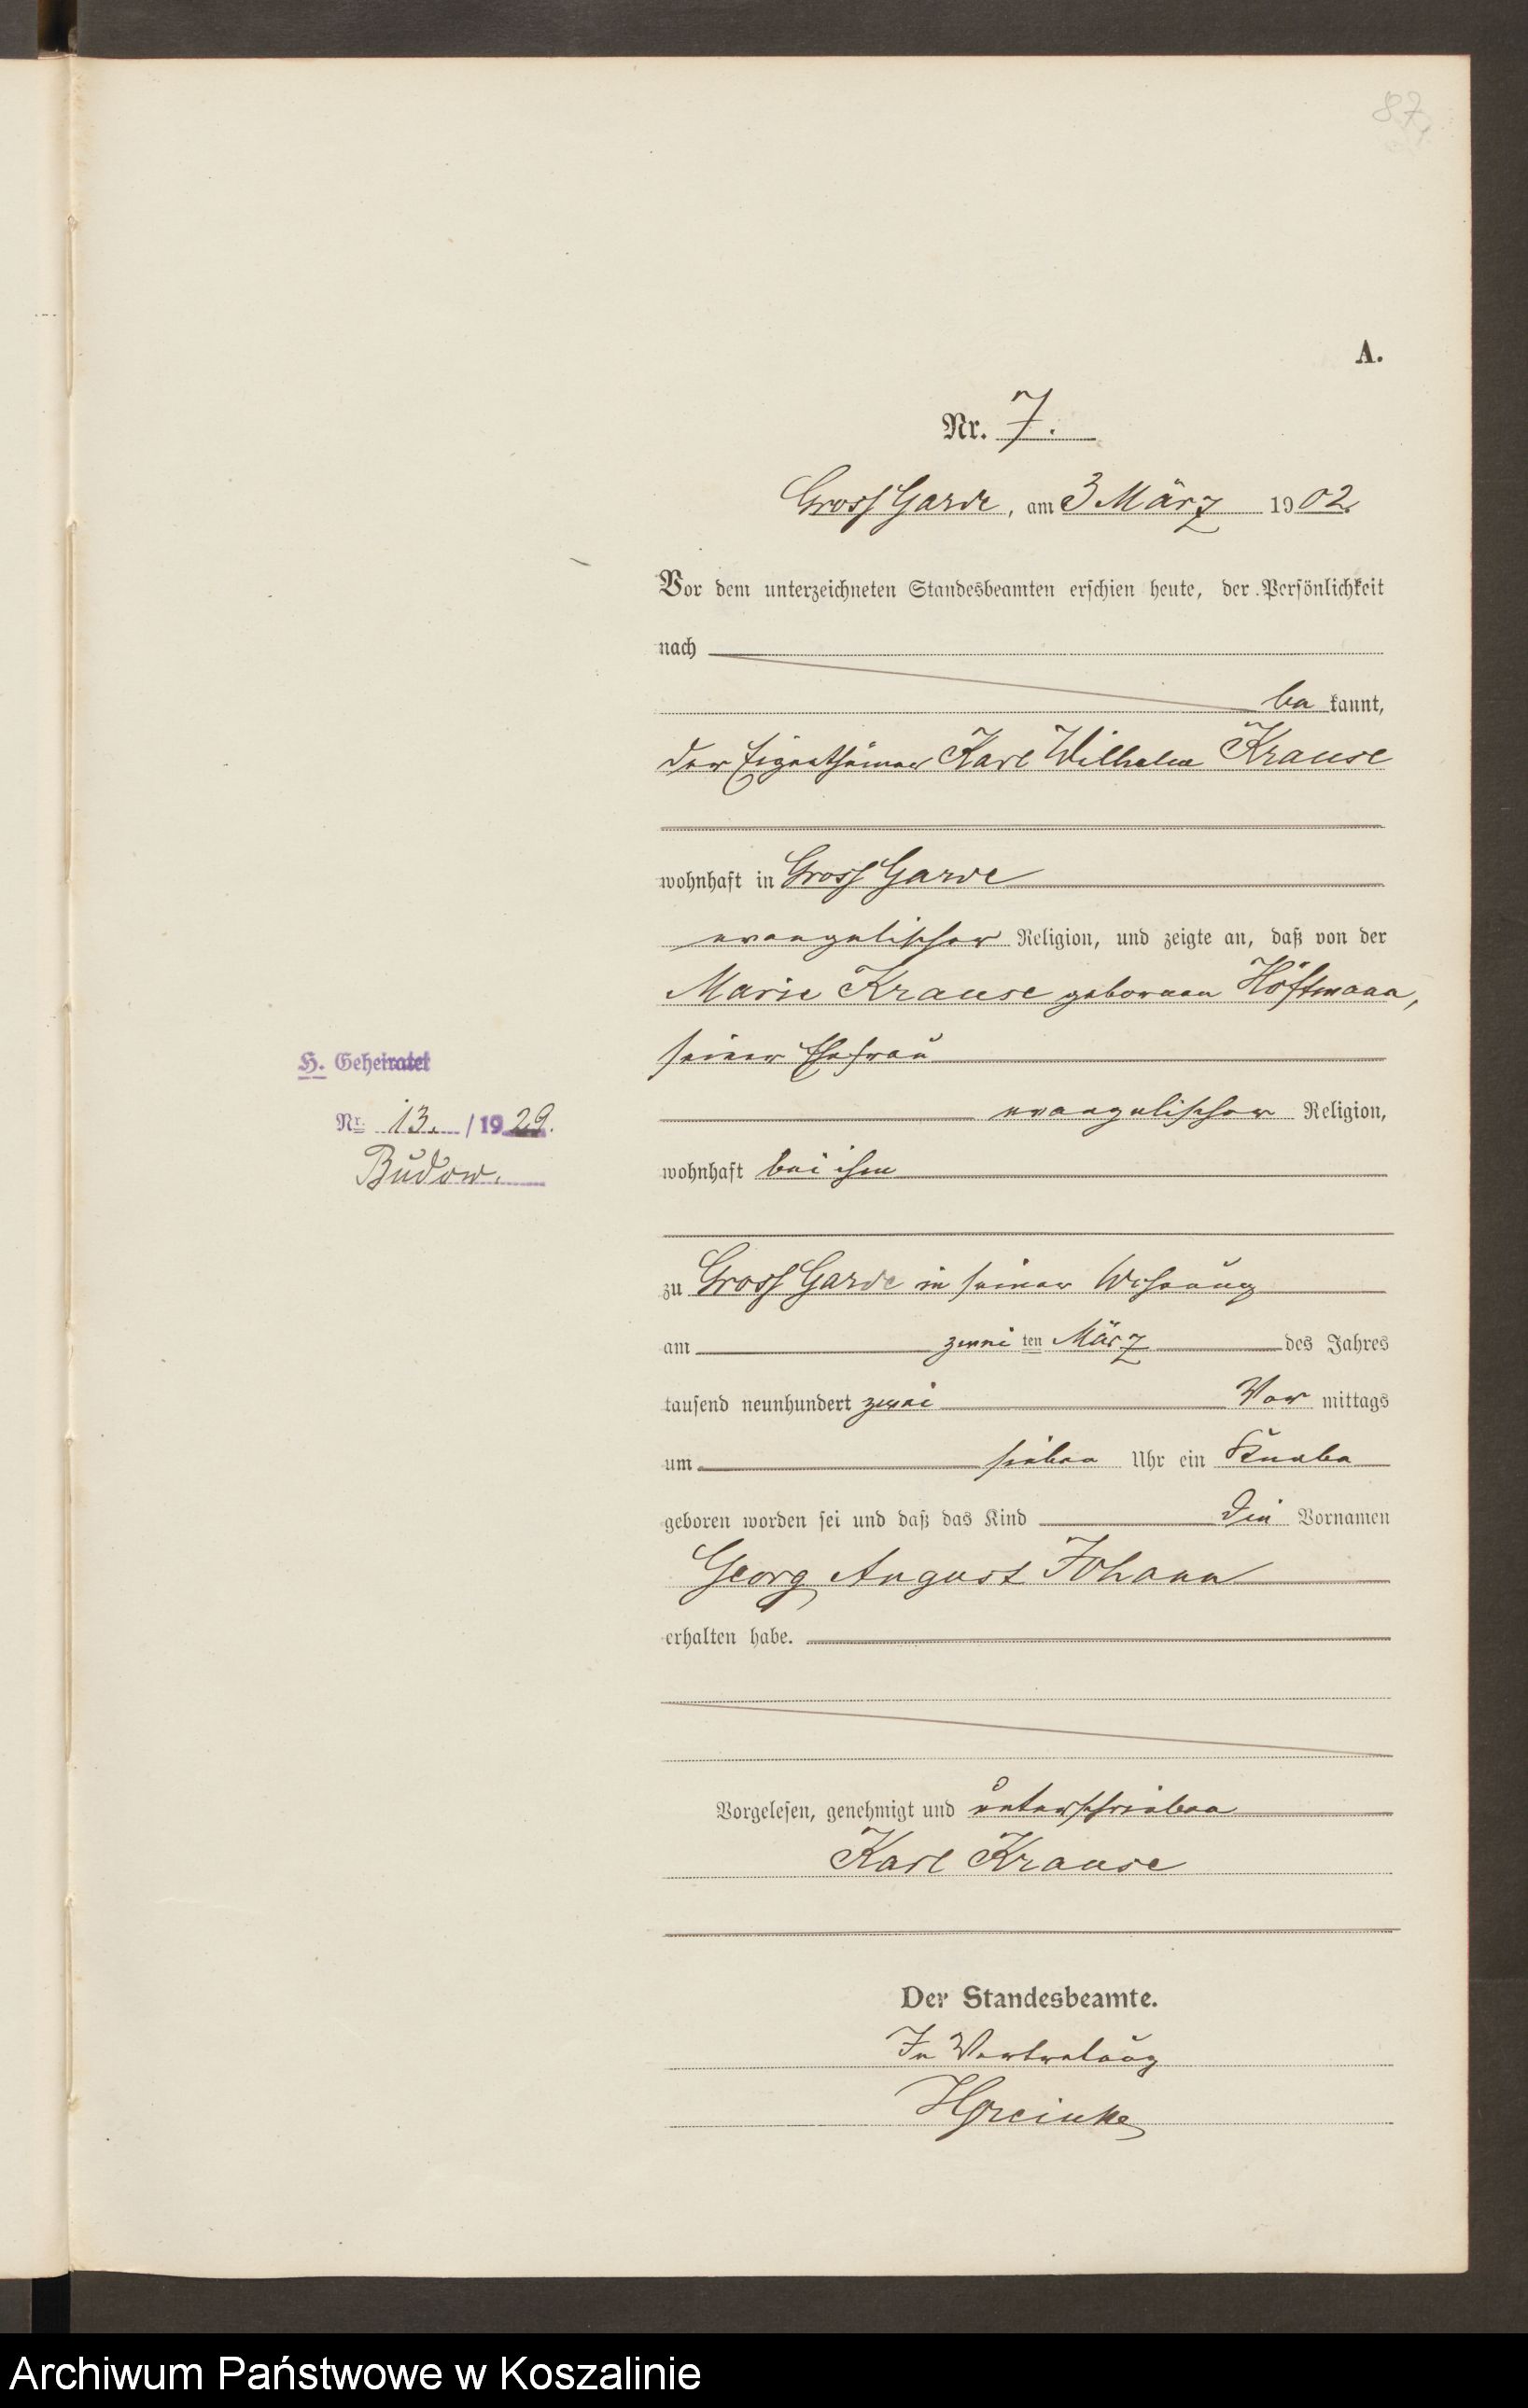 87
A.
Nr. 7.
Gross Garde, am 3 März 1902.
Vor dem unterzeichneten Standesbeamten erschien heute, der Persönlichkeit
nach
be kannt,
der Eigenthümer Karl Wilhelm Krause
wohnhaft in Gross Garde
evangelischer Religion, und zeigte an, daß von der
Marie Krause geborenen Höftmann,
seiner Ehefrau
evangelischer Religion,
wohnhaft bei ihm
zu Gross Garde in seiner Wohnung
am zwei ten März des Jahres
tausend neunhundert zwei Vor mittags
um sieben Uhr ein Knabe
geboren worden sei und daß das Kind die Vornamen
Georg August Johann
erhalten habe.
Vorgelesen, genehmigt und unterschrieben
Karl Krause
Der Standesbeamte.
In Vertretung
HGreinke
H. Geheiratet
Nr. 13. / 1929.
Budow.
Archiwum Państwowe w Koszalinie